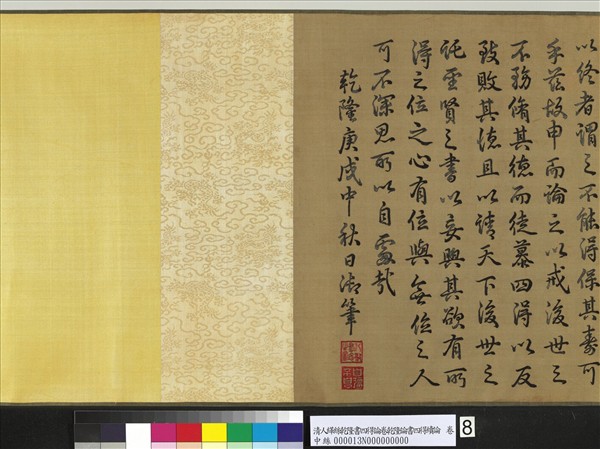 以終者謂之不能得保其壽可
乎茲故申而論之以戒後世之
不務脩其德而徒慕四得以反
致敗其德且以天下後世之
託聖賢之書以妄興其欲有所
得之位之心有位與無位之人
可不深思所以自處哉
乾隆庚戌中秋日御筆
清人緙絲乾隆書四得論卷乾隆書四得續論 卷
中絲000013N000000000
8